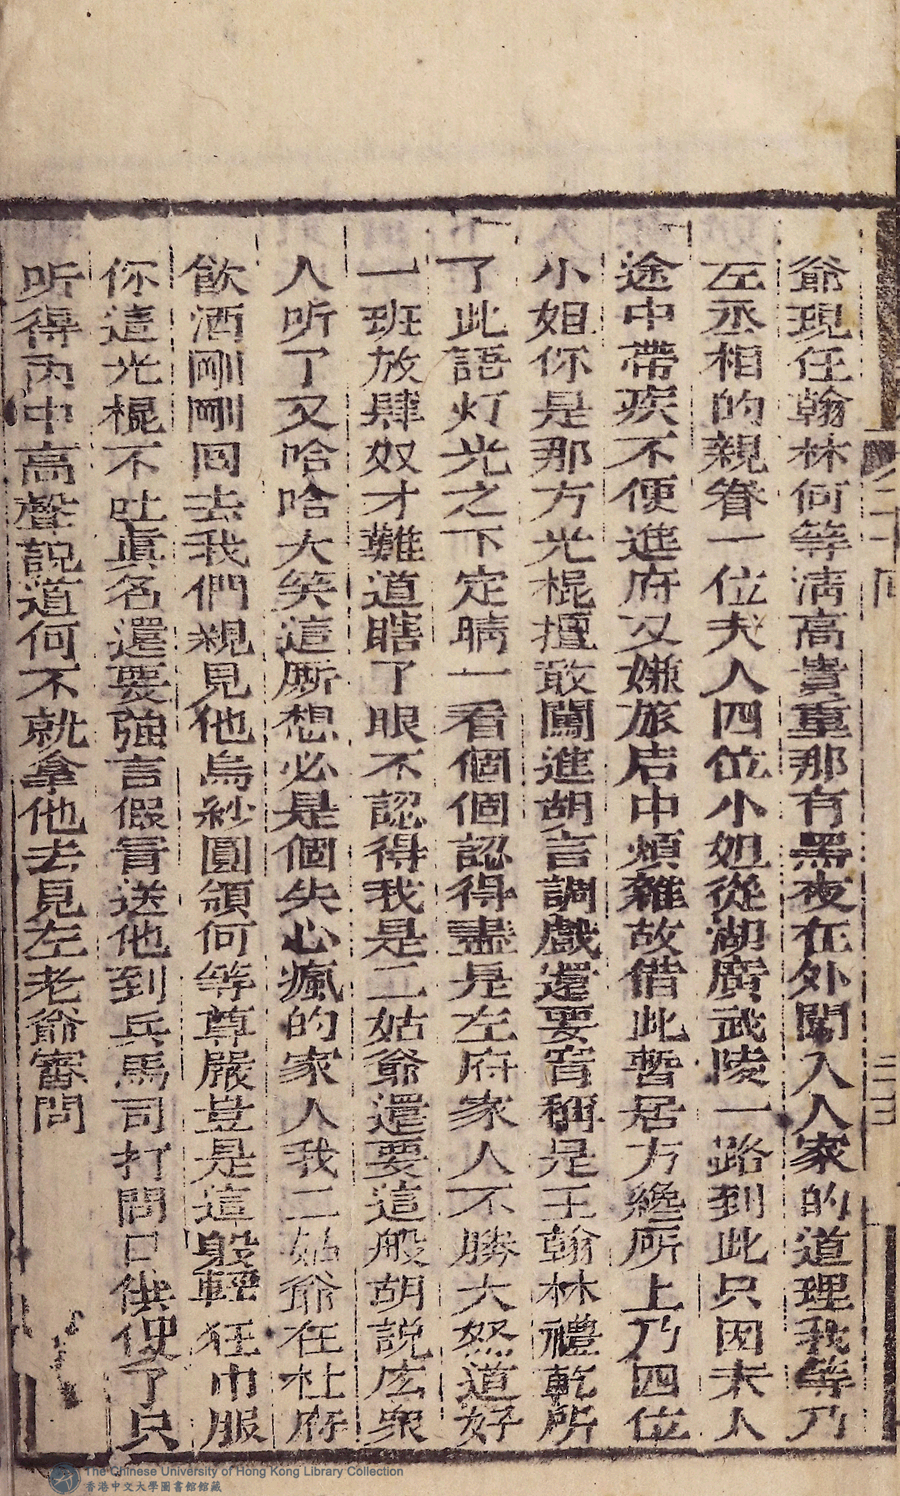 爺現任翰林何等淸高貴重那有黑夜在外闖入人家的道理我等乃
左丞相的親眷一位夫人四位小姐從湖廣武陵一路到此只因夫人
途中帶疾不便進府又嫌旅店中煩雜故借此暫居方纔厛上乃四位
小姐你是那方光棍擅敢闖進胡言調戲還要冐稱是王翰林禮乾所
了此語灯光之下定睛一看個個認得盡是左府家人不勝大怒道好
一班放肆奴才難道瞎了眼不認得我是二姑爺還要這般胡説庅衆
人听了又哈哈大笑這厮想必是個失心瘋的家人我二姑爺在杜府
飲酒剛剛回去我們親見他烏紗圓領何等尊嚴豈是這般輕狂巾服
你這光棍不吐眞名還要強言假冐送他到兵馬司打問口供便了只
听得內中高聲說道何不就拿他去見左老爺審問
二十 回
三
The Chinese University of Hong Kong Library Collection
香港中文大學圖書館館藏